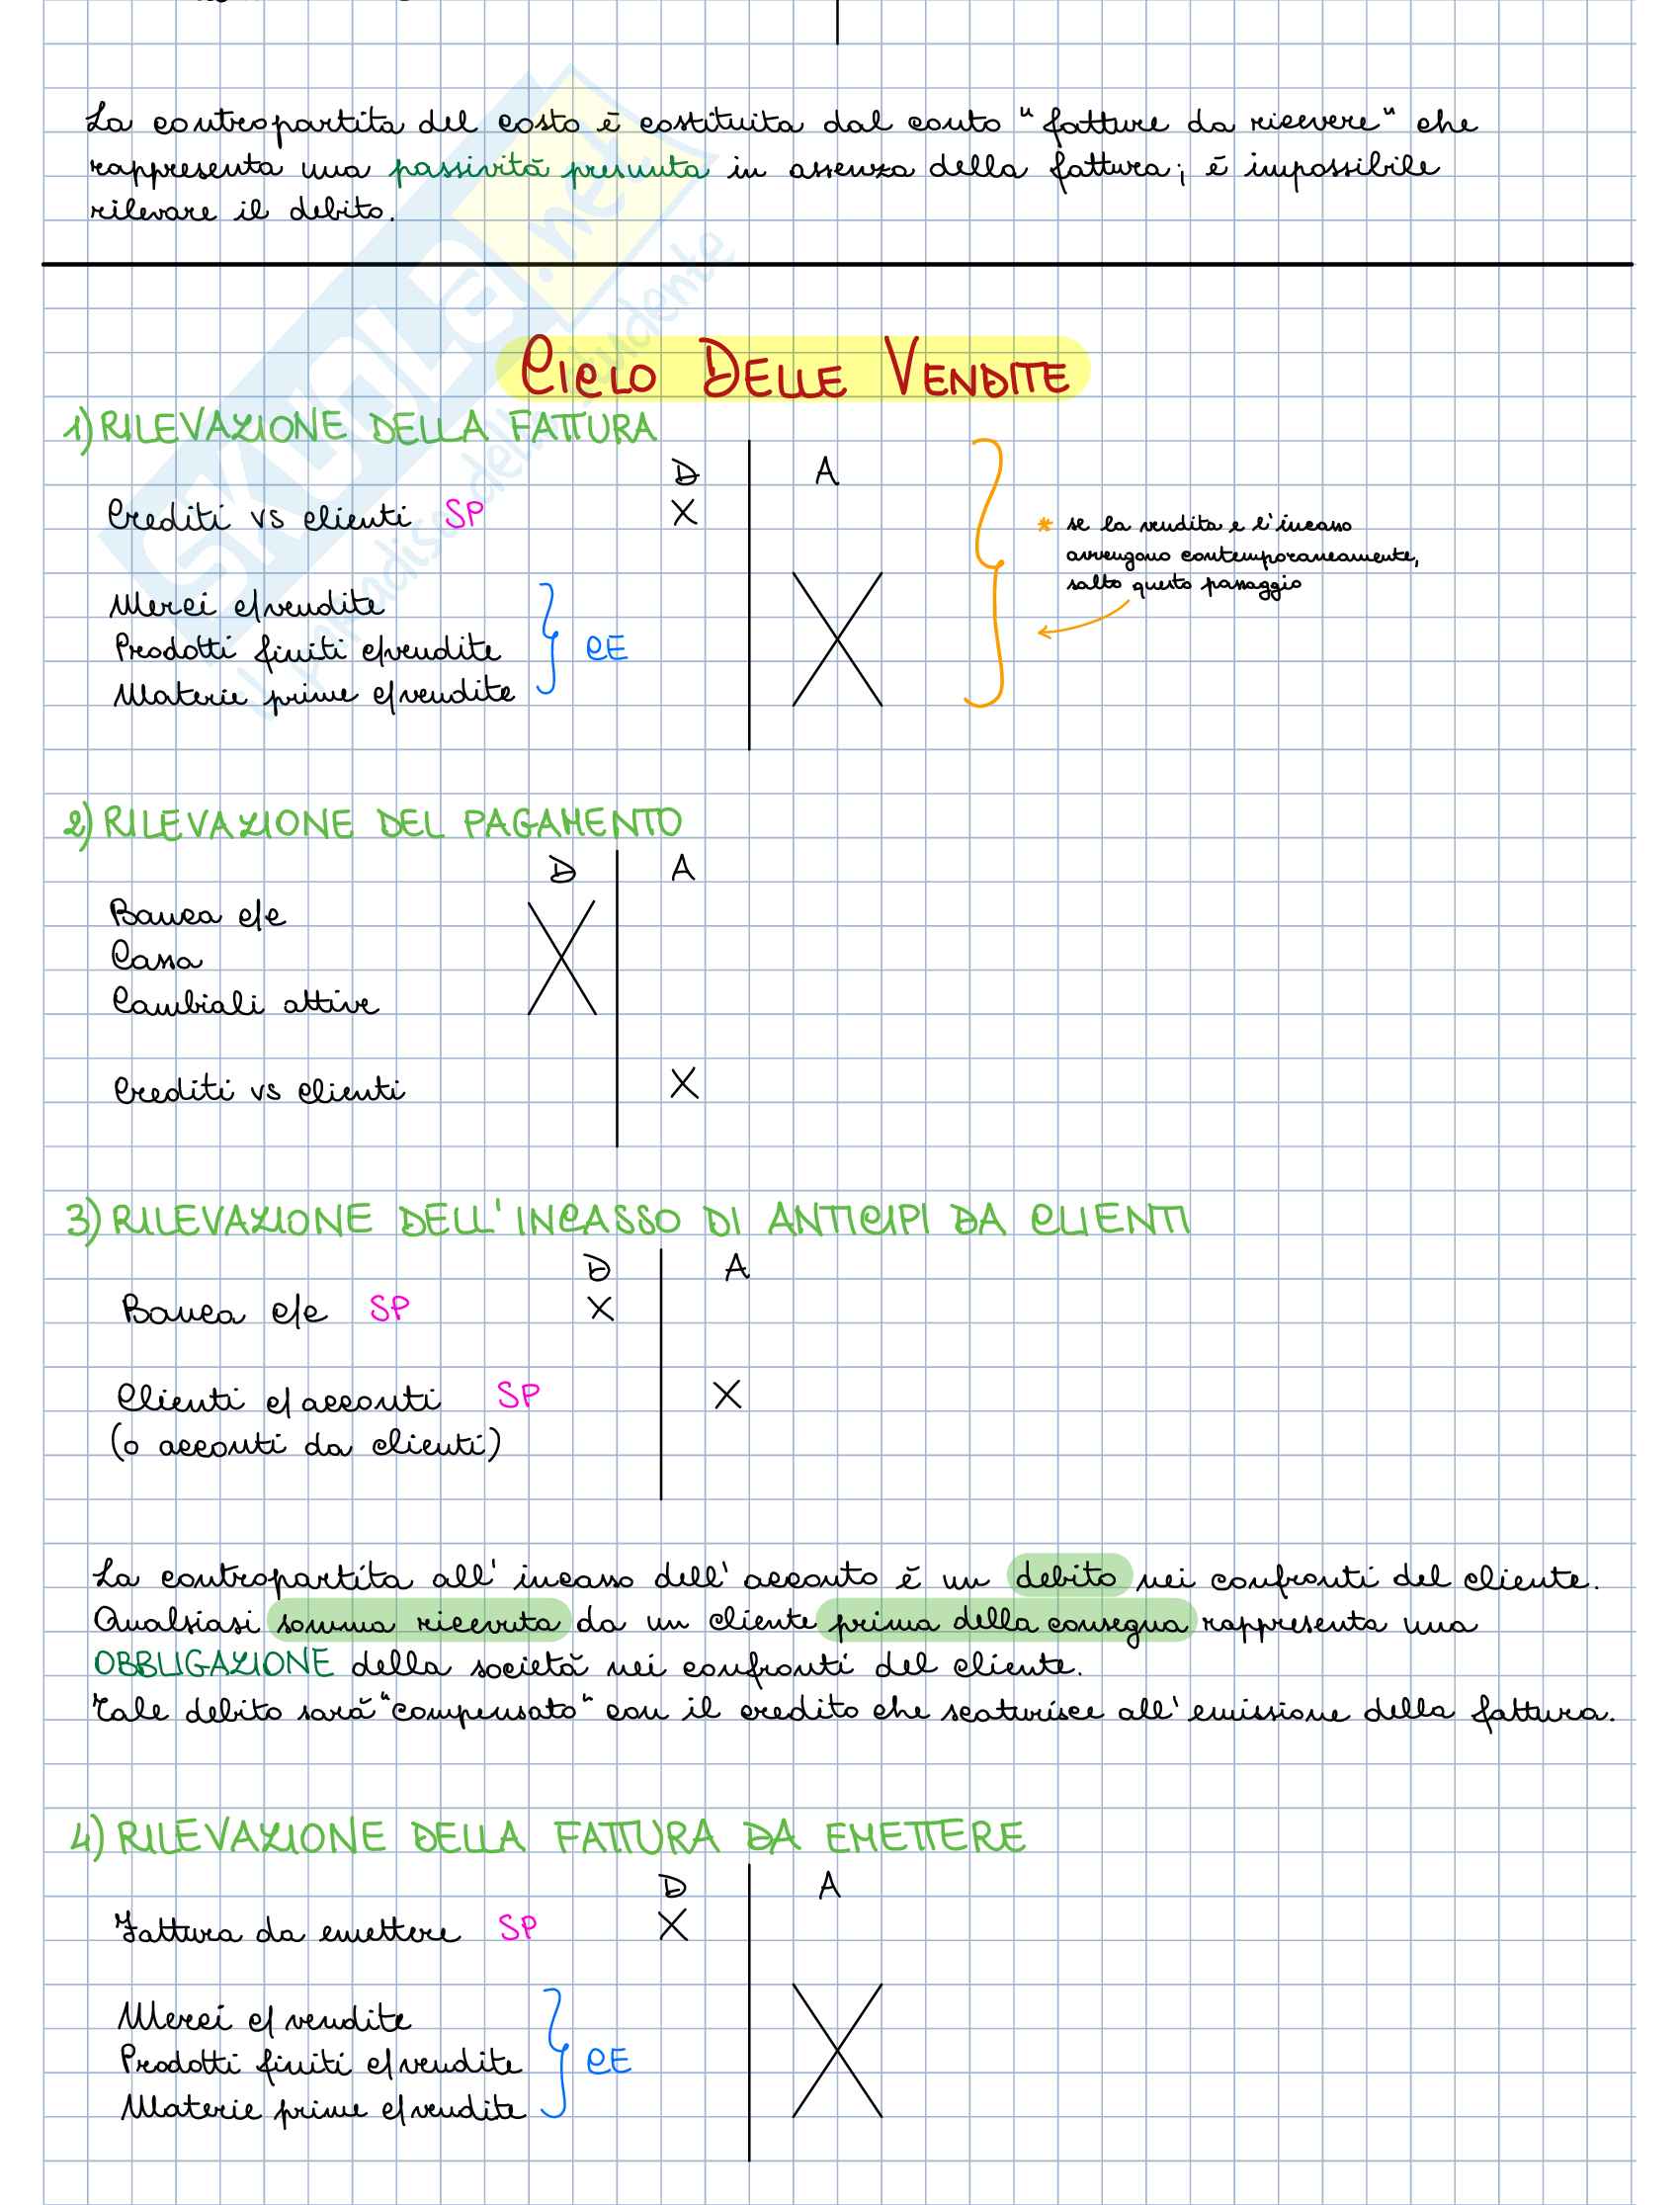 La contropartita del costo è costituita dal conto "fatture da ricevere" che
rappresenta una passività presunta in assenza della fattura; è impossibile
rilevare il debito.
CICLO DELLE VENDITE
1) RILEVAZIONE DELLA FATTURA
D A
Crediti vs clienti SP X
* se la vendita e l'incasso
avvengono contemporaneamente,
salto questo passaggio
Merci c/vendite
Prodotti finiti c/vendite CE X
Materie prime c/vendite
2) RILEVAZIONE DEL PAGAMENTO
D A
Banca c/c
Cassa X
Cambiali attive
Crediti vs clienti X
3) RILEVAZIONE DELL'INCASSO DI ANTICIPI DA CLIENTI
D A
Banca c/c SP X
Clienti c/acconti SP X
(o acconti da clienti)
La contropartita all'incasso dell'acconto è un debito nei confronti del cliente.
Qualsiasi somma ricevuta da un cliente prima della consegna rappresenta una
OBBLIGAZIONE della società nei confronti del cliente.
Tale debito sarà "compensato" con il credito che scaturisce all'emissione della fattura.
4) RILEVAZIONE DELLA FATTURA DA EMETTERE
D A
Fattura da emettere SP X
Merci c/vendite
Prodotti finiti c/vendite CE X
Materie prime c/vendite
SKUOLA.net
il paradiso dello studente